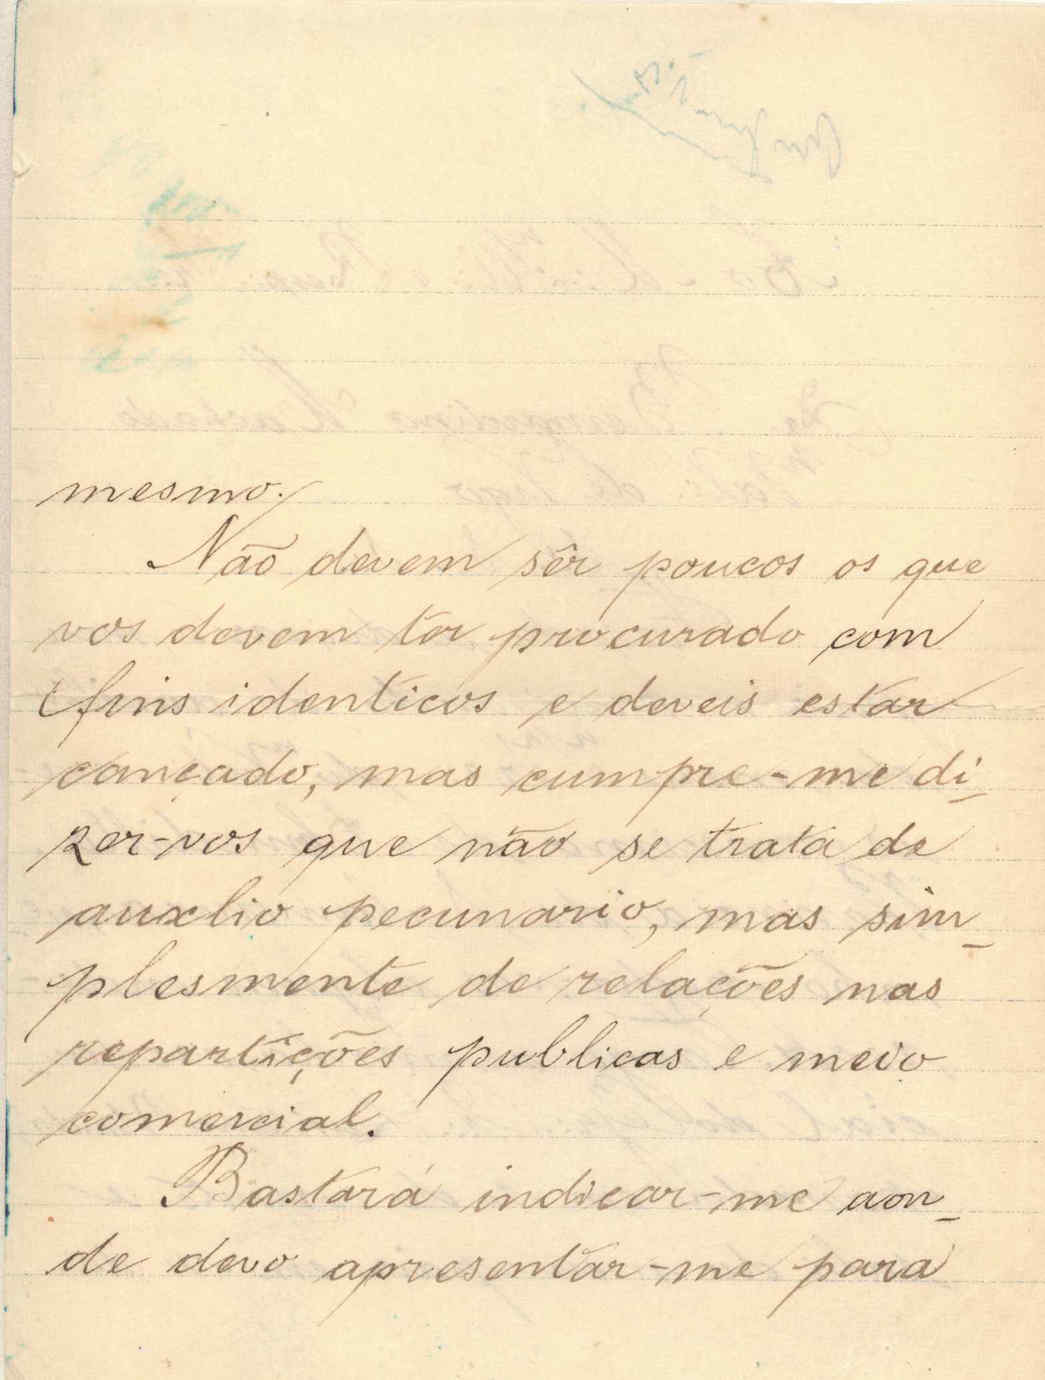 mesmo.
Não devem sêr poucos os que
vos devem ter procurado com
fins identicos e deveis estar
cançado, mas cumpre-me di-
zer-vos que não se trata de
auxlio pecunario, mas sim-
plesmente de relações nas
repartições publicas e meio
comercial.
Bastará indicar-me aon-
de devo apresentar-me para